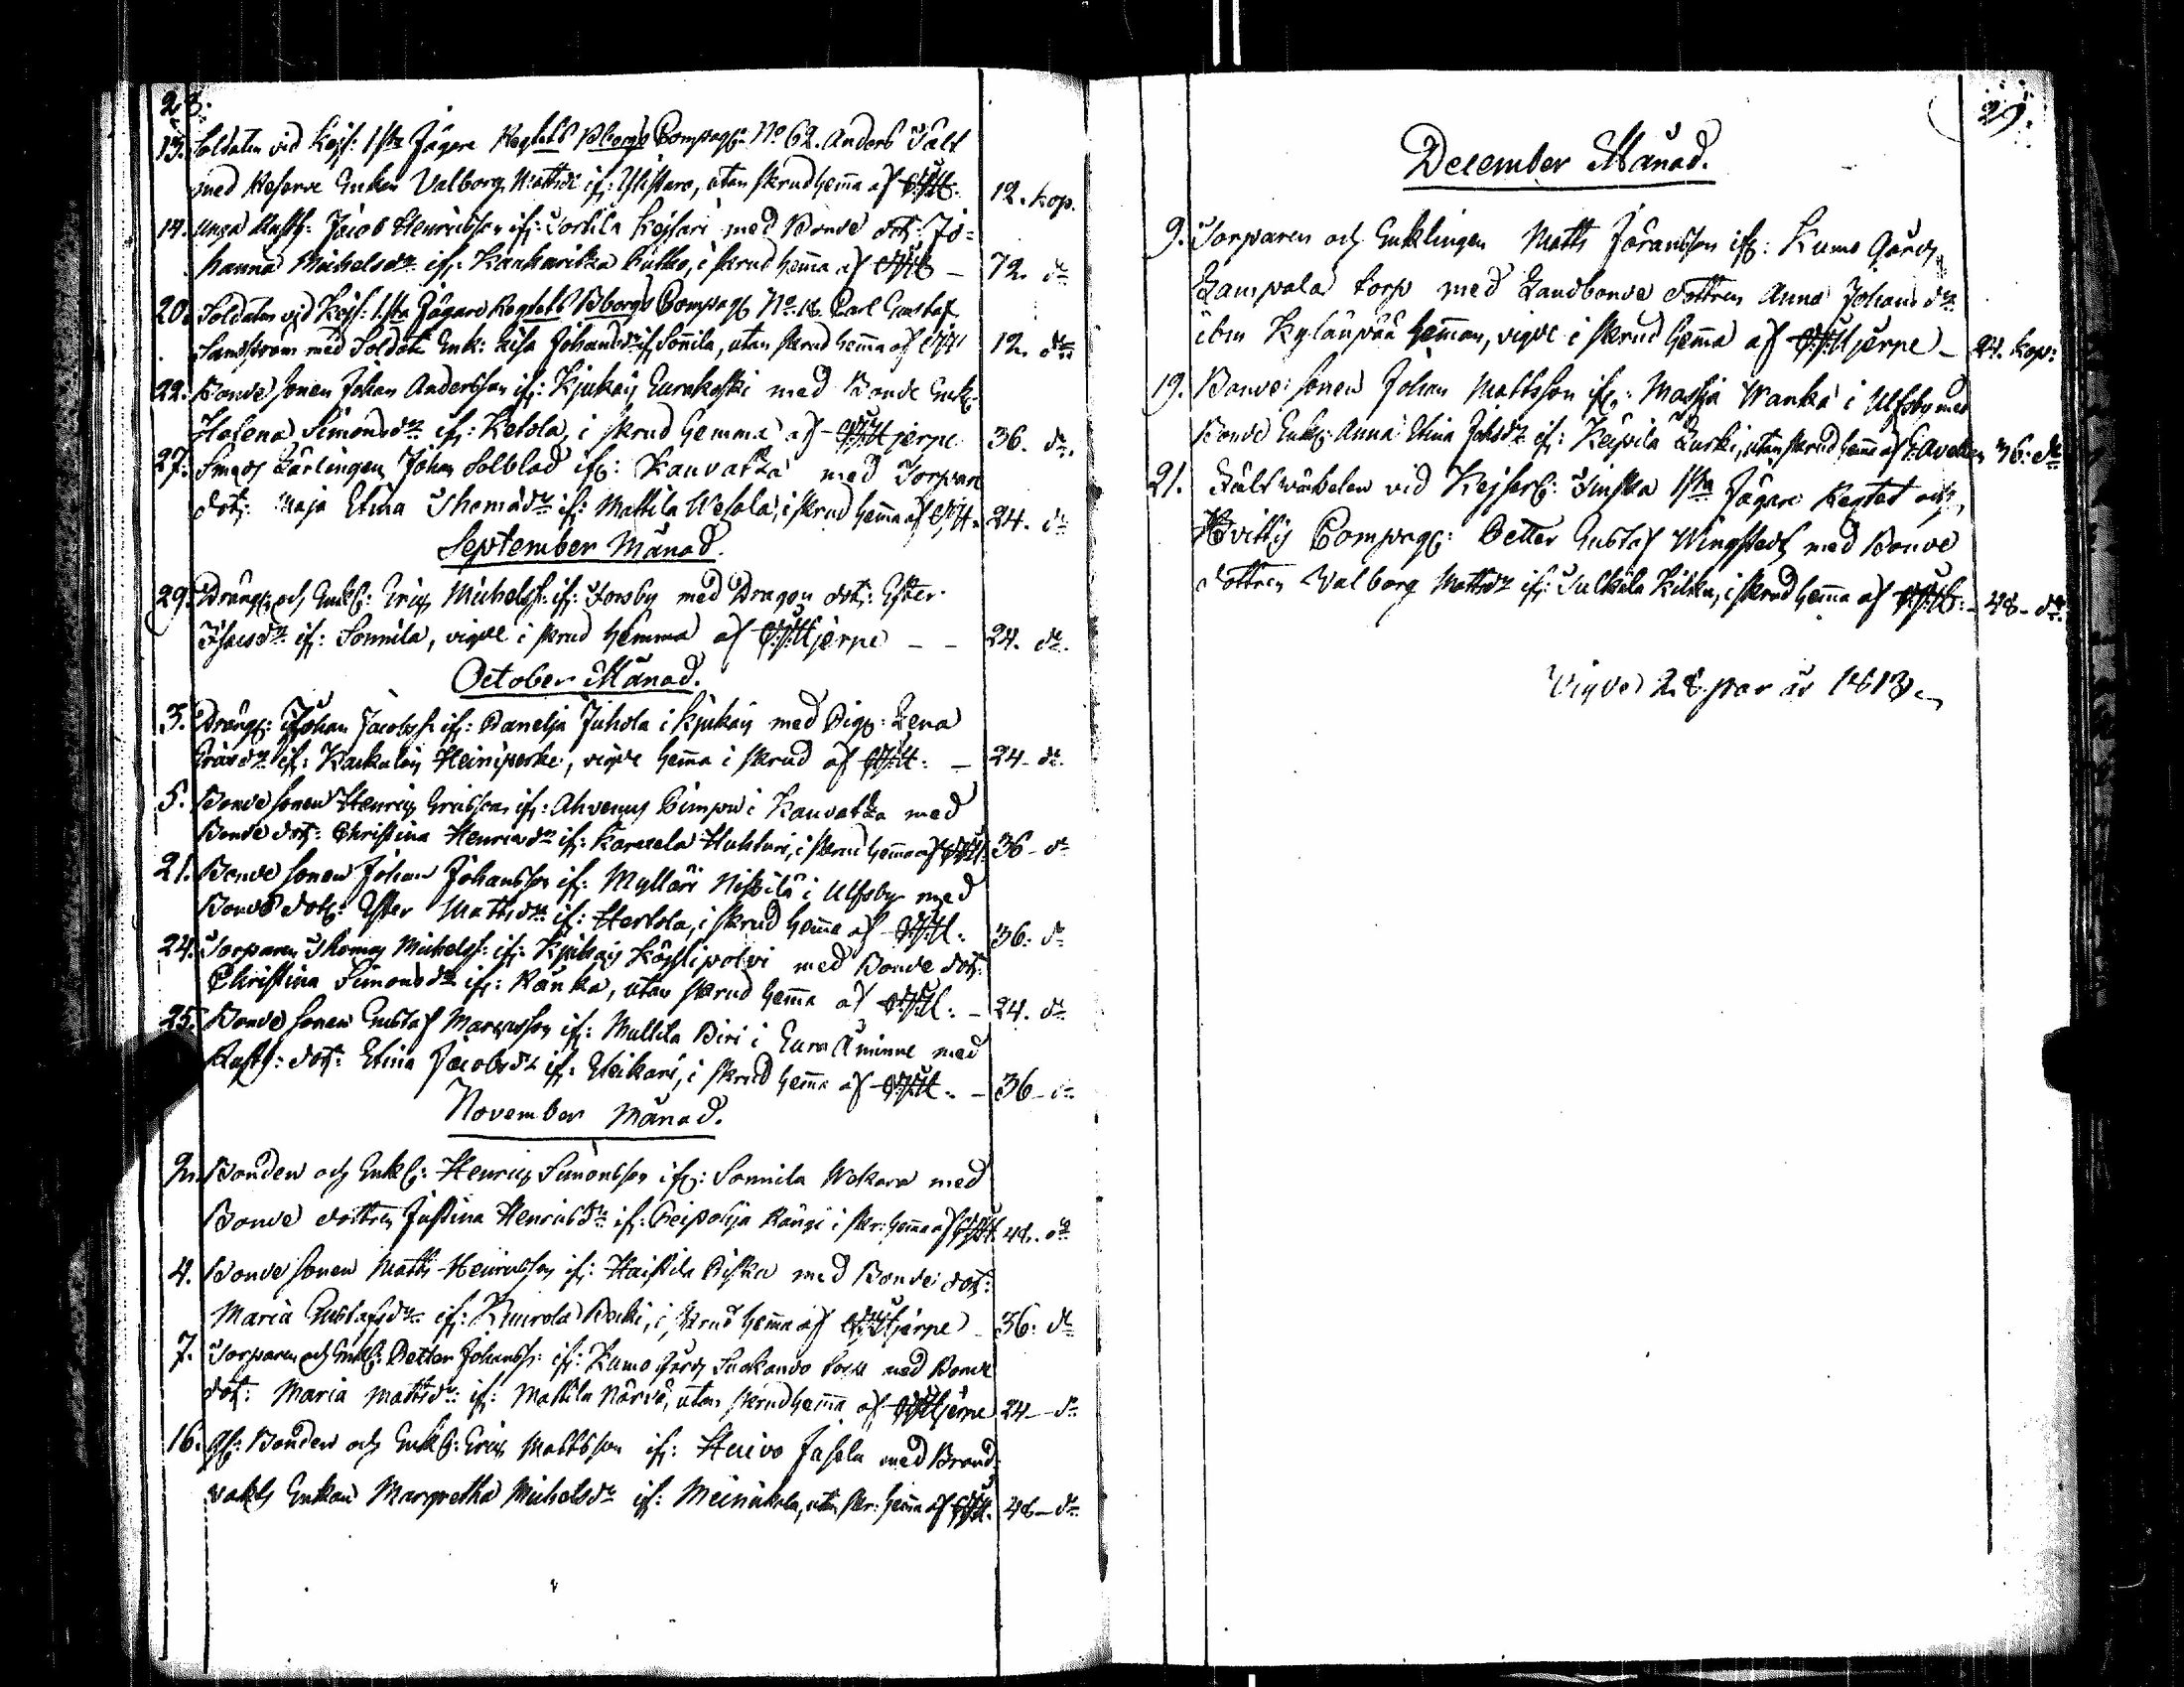 28.
13. Soldaten vid Kejs: 1sta Jägare Regtets Bborgs Compagn: No 62. Anders Falt
med Reserve Enkan Valborg Mattsdr ifr: Ylistaro, utan skrud hemma af 12. kop.
14. unga Rusth: Jacob Henricsson ifr: Forsila Kejsari med Bonde dotr: Jo=
hanna Michelsdr ifr: Kankarista Pukko, i skrud hemma af - 72. dr
20. Soldaten vid Kejs: 1sta Jägare Regtets Bborgs Compag: No 18 Carl Gustaf
Sandström med Soldats Enk: Lisa Johansdr ifr Sonnila, utan skrud hemma af 12. dr
22. Bonde sonen Johan Andersson ifr: Kjukais Eurakoski med Bonde Enk:
Helena Simonsdr ifr: Ketola, i skrud hemma af Stjerne 36. dr.
27. Smeds Lärlingen Johan Solblad ifr: Kauvatza med Torpare
dotr: Maja Stina Thomasdr ifr: Mattila Wesola, i skrud hemma af 24. dr
September Månad.
29. Dräng och Enkl: Eric Michelss: ifr: Forsby med Dragon dotr: Ester
Isacsdr ifr: Sonnila, vigde i skrud hemma af Stjerne - - 24. dr.
October Månad.
3. Dräng: Johan Jacobss: ifr: Danelja Juhola i Kjukais med Pig: Lena
Ericsdr ifr: Kaukalais Heinipertti, vigde hemma i skrud af - 24 - dr.
5. Bonde sonen Henric Ericsson ifr: Ahvenus Pimpu i Kauvatza med
Bonde dotr: Christina Henricsdr ifr: Karvela Huhtari, i skrud hemma af 36 - dr
21. Bonde sonen Johan Johansson ifr: Myllari Niskilä i Ulfsby med
Bonde dotr: Ester Mattsdr ifr: Hertola, i skrud hemma af 36: dr
24. Torparen Thomas Michelss: ifr: Kjukais Köylipolvi med Bonde dotr:
Christina Simonsdr ifr: Ränka, utan skrud hemma af - 24. dr
25. Bonde sonen Gustaf Marcusson ifr: Mullila Biri i Eura Åminne med
Rusth: dotr: Stina Jacobsdr ifr: Yleikari, i skrud hemma af - 36 - dr
November Månad.
2. Bonden och Enkl: Henric Simonsson ifr: Sonnila Wokara med
Bonde dottren Justina Henricsdr ifr: Peipohja Rangi i skr: hemma af 48. dr
4. Bonde sonen Matts Henricsson ifr: Haistila Piska med Bonde dotr:
Maria Gustafsdr ifr: Kuurola Backi, i skrud hemma af Stjerne - 36: dr
7. Torparen och Enkl: Petter Johanss: ifr: Kumo gård Suokanvo torp med Bonde
dotr: Maria Mattsdr ifr: Mattila Närvä, utan skrud hemma af Stjerne 24 - dr
16. gl: Bonden och Enkl: Eric Mattsson ifr: Huivo Jasela med Brand
vakts Enkan Margretha Michelsdr ifr: Meinikala, utan skr: hemma af 48 - dr
29.
December Månad.
9. Torparen och Enklingen Matts Göransson ifr: Kumo Gårds
Lampala torp med Landbonde dottren Anna Johansdr
ibm Kylänpää hemman, vigde i skrud hemma af Stjerne - 24. kop:
19. Bonde sonen Johan Mattsson ifr: Masia Wanha i Ulfsby med
Bonde Enk: Anna Stina Johsdr ifr: Keipilä Lurki, utan skrud hemma af F: Avellan 36: dr
21. Fältväbelen vid Kejserl: Finska 1sta Jägare Regtet och
Hvittis Compagn: Petter Gustaf Wingstedt med Bonde
dottren Valborg Mattsdr ifr: Tulkkila Kilkku, i skrud hemma af - 48 - dr
Vigde 28. par år 1813.